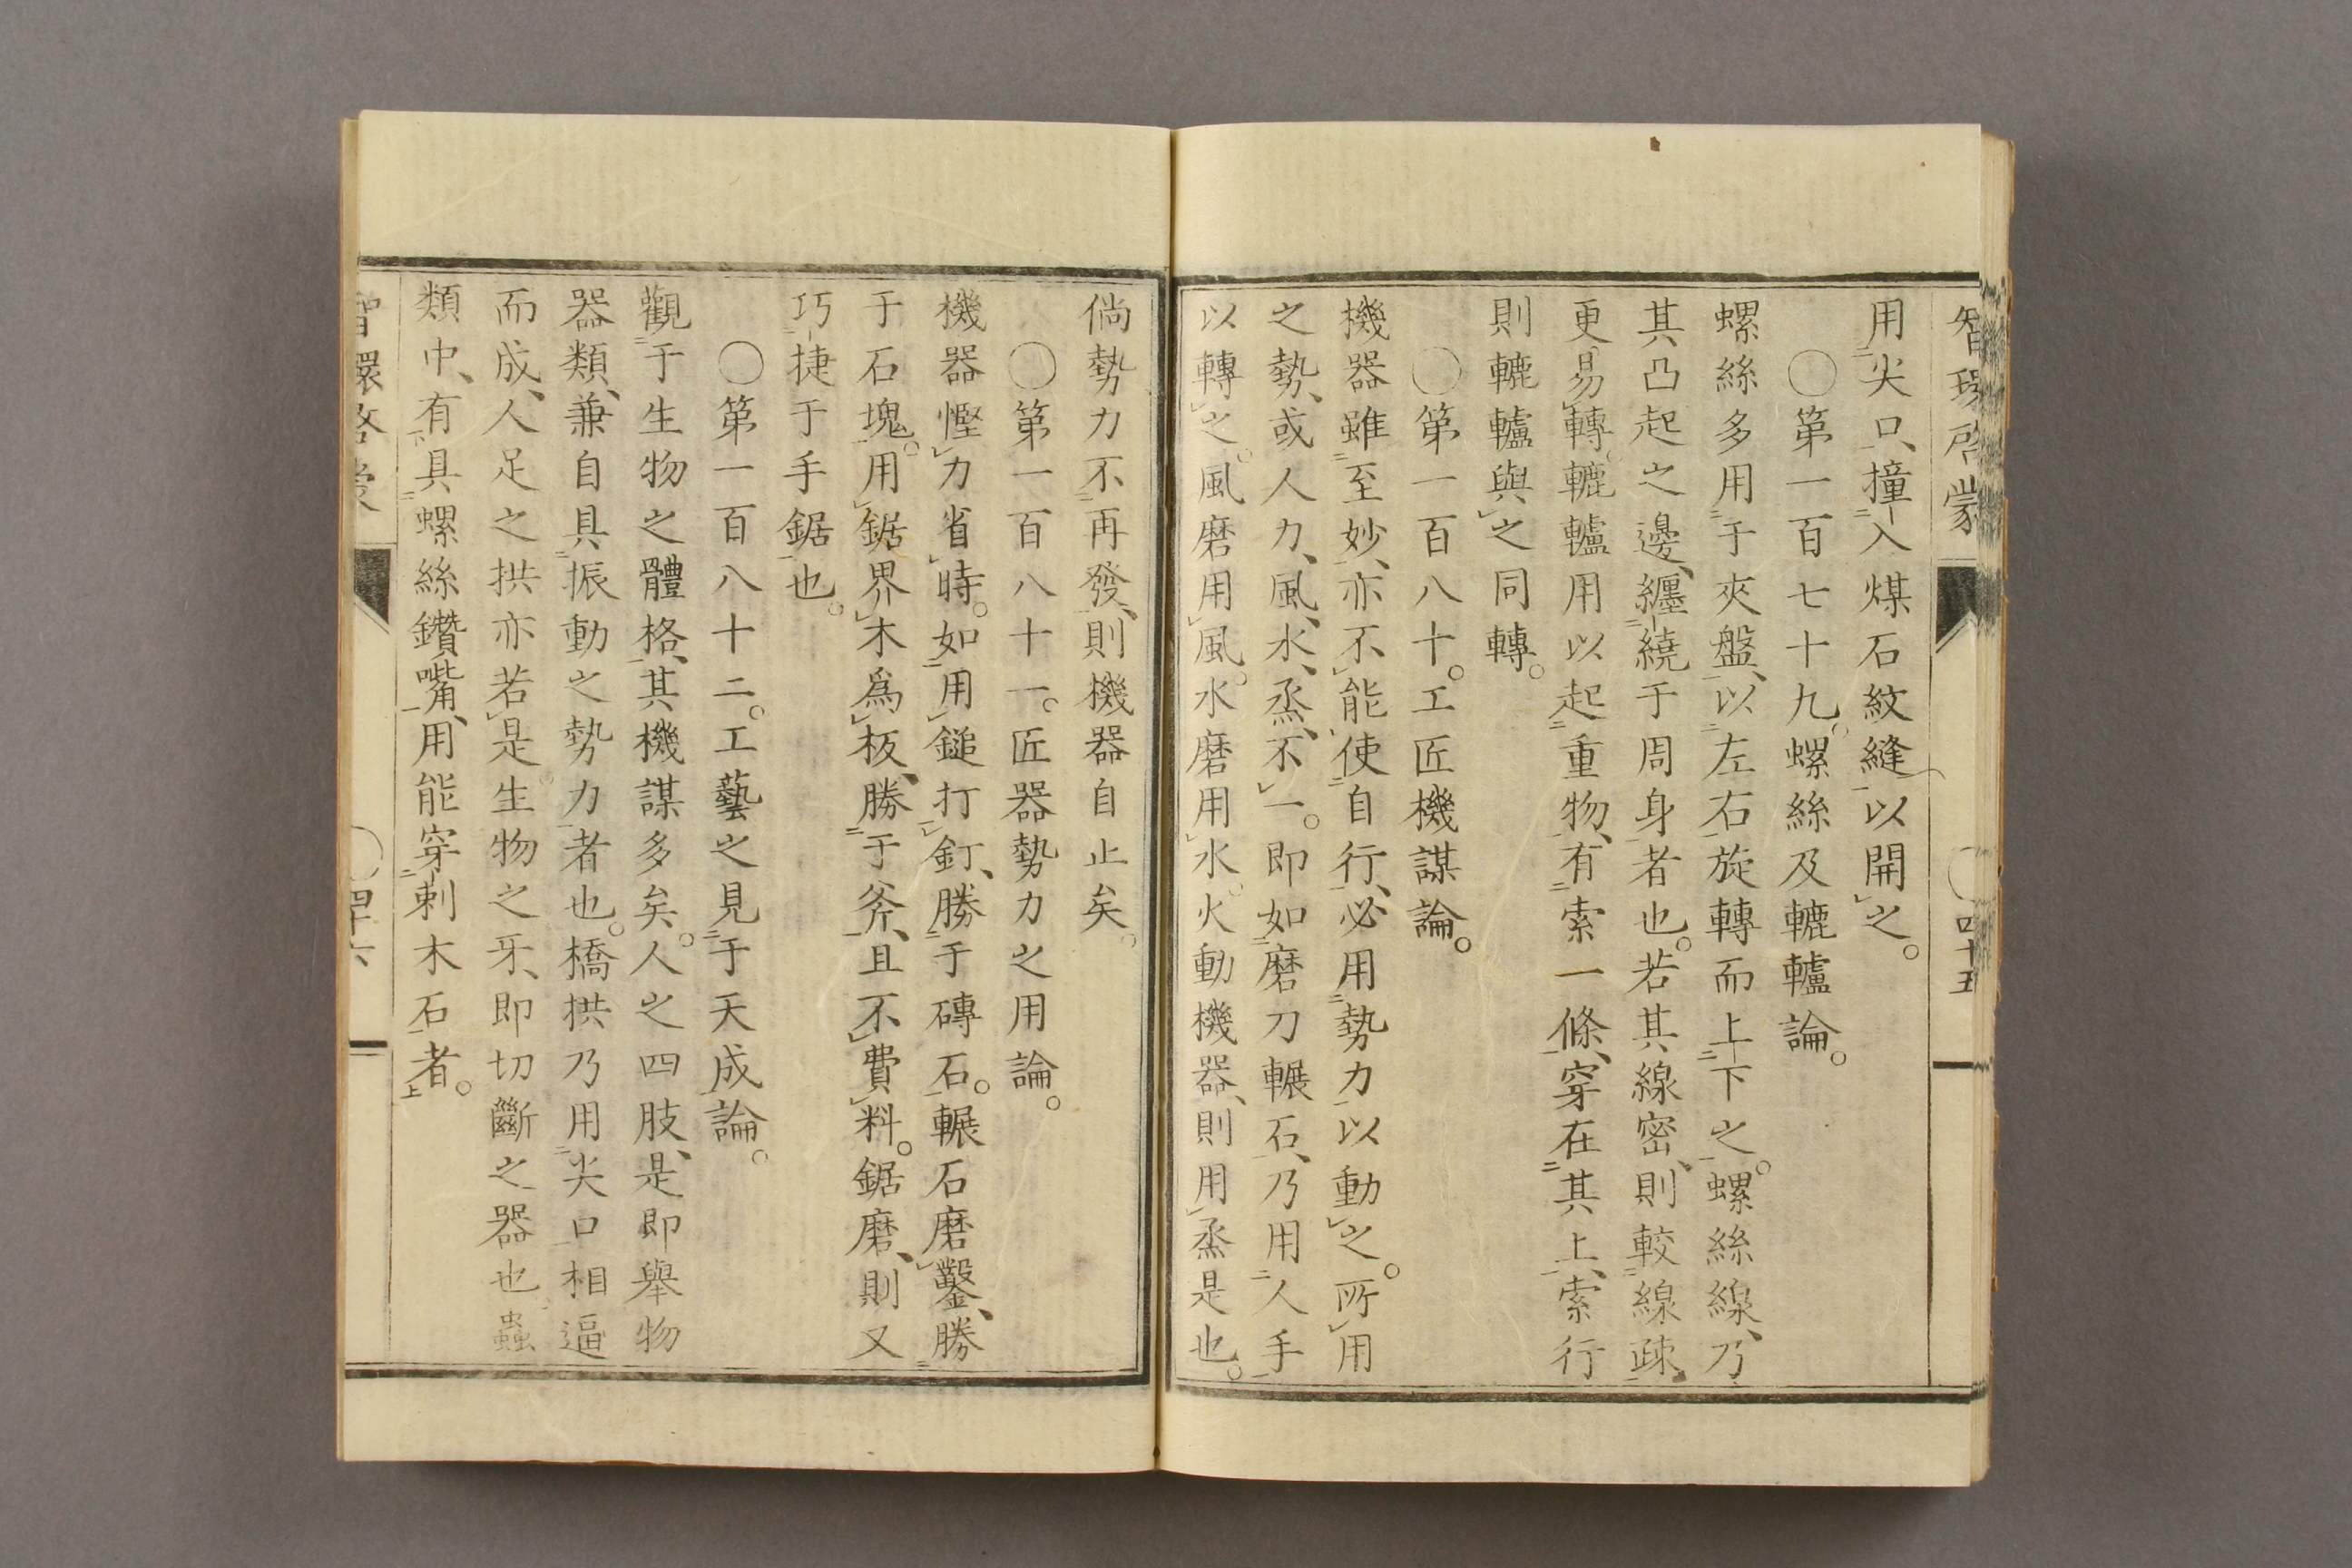 智環啓蒙
四十五
用尖口、撞入煤石紋縫以開之。
〇第一百七十九。螺絲及轆轤論。
螺絲多用于夾盤、以左右旋轉而上下之。螺絲線、乃
其凸起之邊、纏繞于周身者也。若其線密、則較線疎、
更易轉。轆轤用以起重物、有索一條、穿在其上、索行
則轆轤與之同轉。
〇第一百八十。工匠機謀論。
機器雖至妙、亦不能使自行、必用勢力以動之。所用
之勢、或人力、風、水、烝、不一。即如磨刀輾石、乃用人手
以轉之。風磨用風。水磨用水。火動機器、則用烝是也。
倘勢力不再發、則機器自止矣。
〇第一百八十一。匠器勢力之用論。
機器慳力省時。如用鎚打釘、勝于磚石。輾石磨鑿、勝
于石塊。用鋸界木爲板、勝于斧、且不費料。鋸磨、則又
巧捷于手鋸也。
〇第一百八十二。工藝之見于天成論。
觀于生物之體格、其機謀多矣。人之四肢、是即舉物
器類、兼自具振動之勢力者也。橋拱乃用尖口相逼
而成、人足之拱亦若是。生物之牙、即切斷之器也、蟲
類中、有具螺絲鑽嘴、用能穿刺木石者。
智環啓蒙
四十六